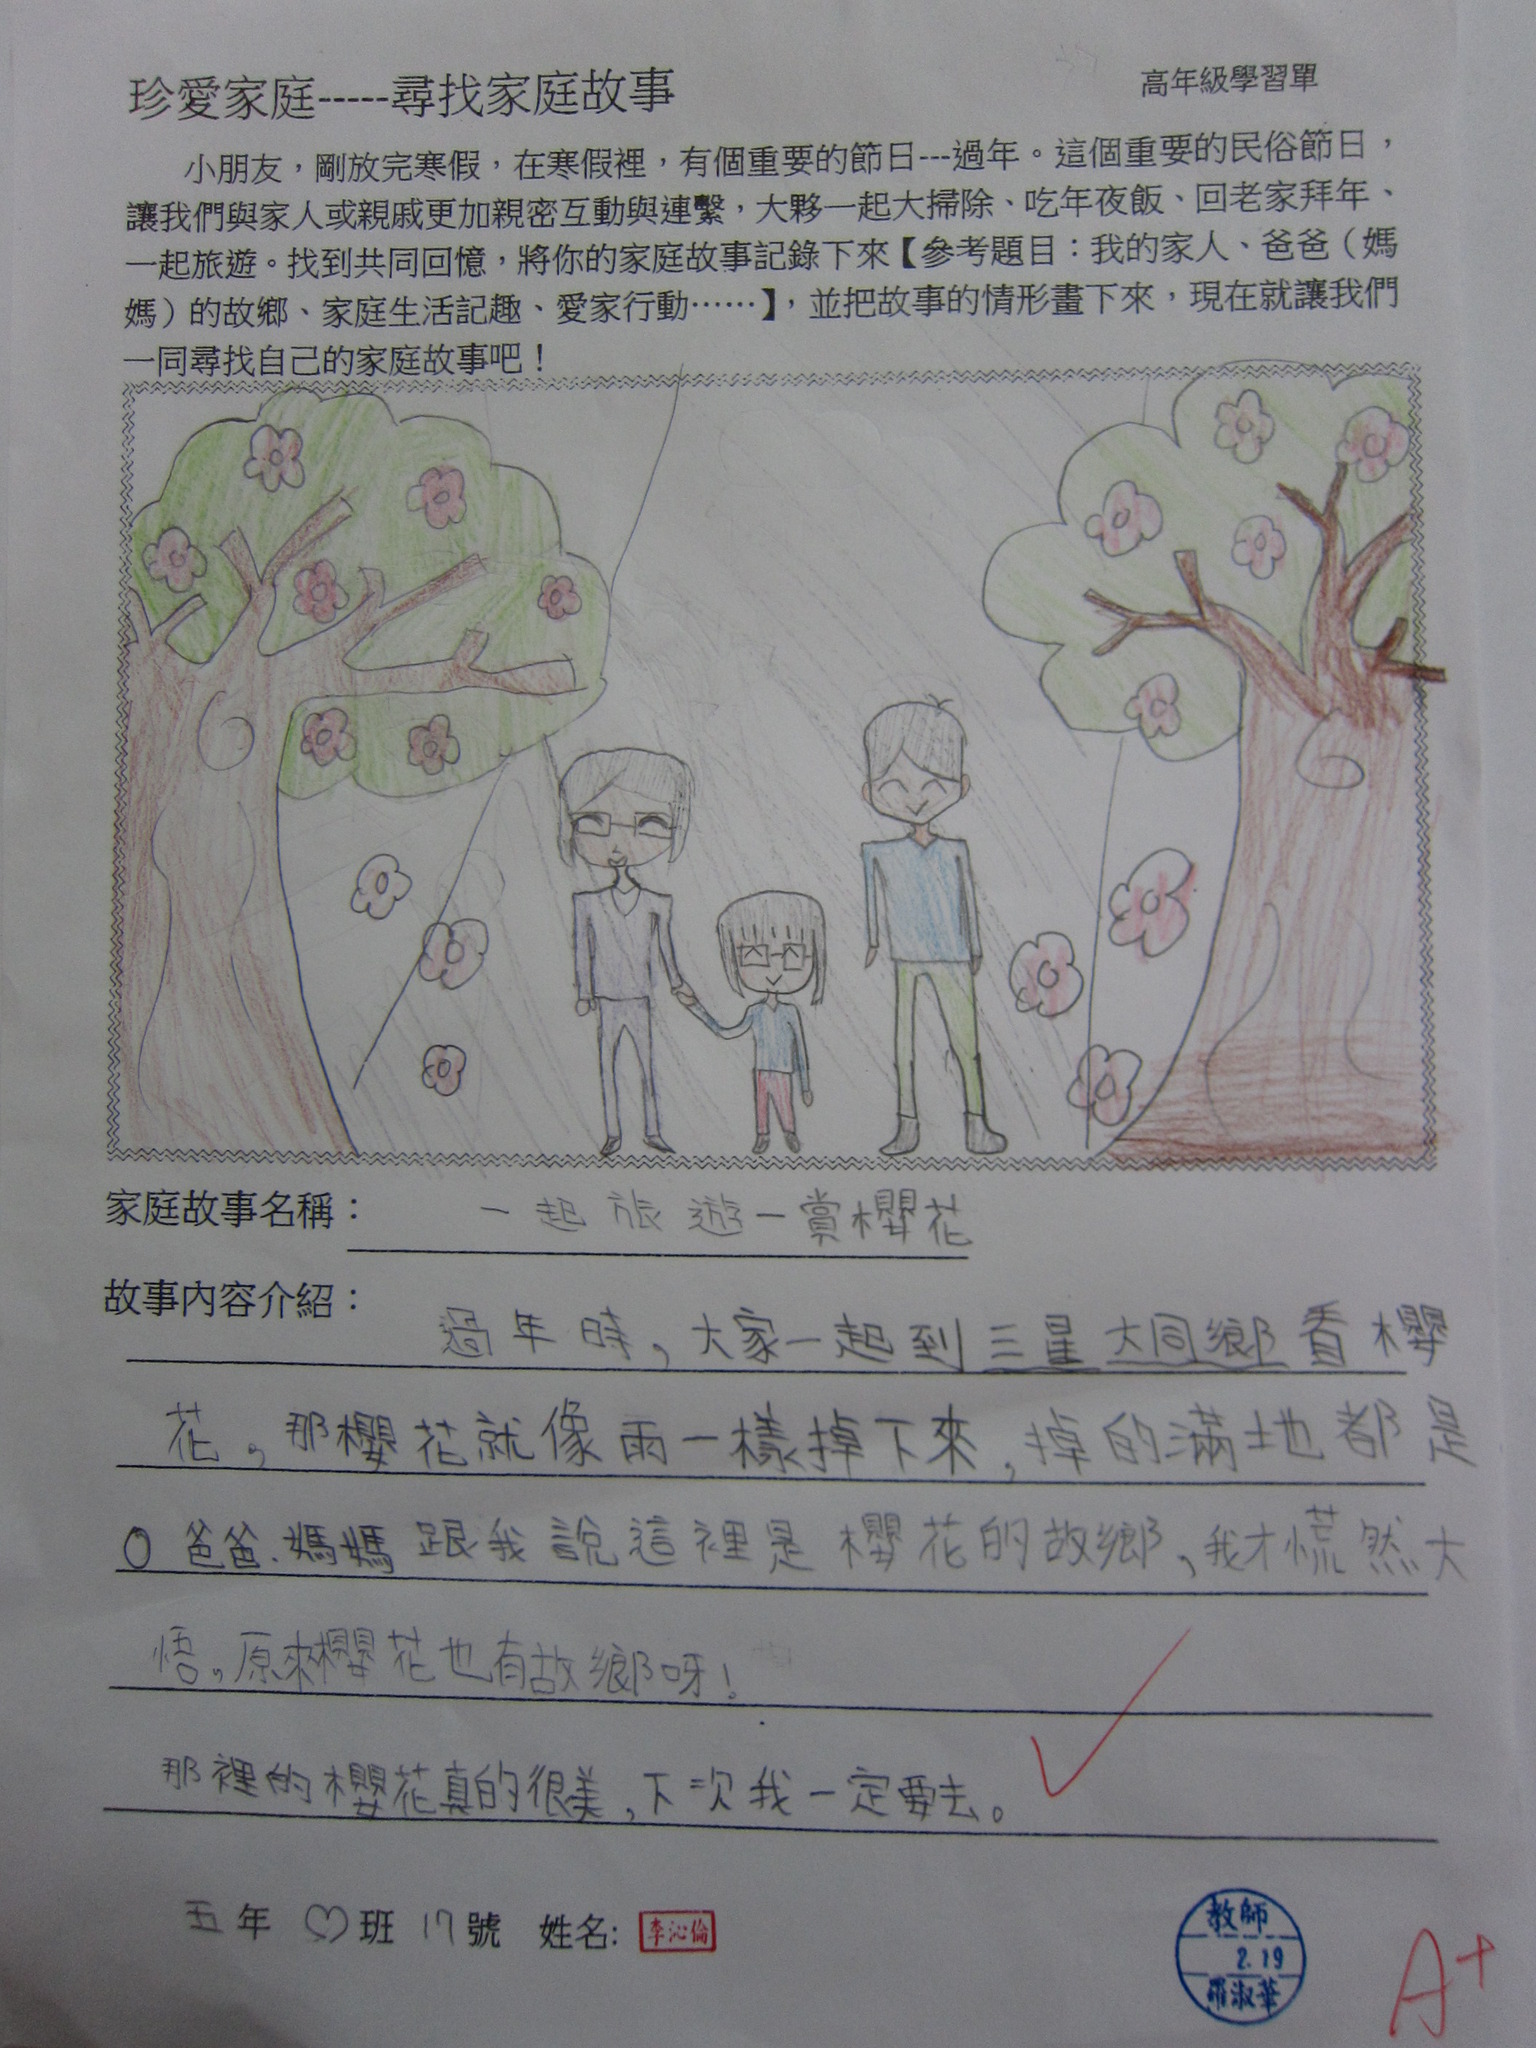 珍愛家庭-----尋找家庭故事
高年級學習單
小朋友，剛放完寒假，在寒假裡，有個重要的節日---過年。這個重要的民俗節日，
讓我們與家人或親戚更加親密互動與連繫，大夥一起大掃除、吃年夜飯、回老家拜年、
一起旅遊。找到共同回憶，將你的家庭故事記錄下來【參考題目：我的家人、爸爸（媽
媽）的故鄉、家庭生活記趣、愛家行動……】，並把故事的情形畫下來，現在就讓我們
一同尋找自己的家庭故事吧！
家庭故事名稱：一起旅遊－賞櫻花
故事內容介紹：
過年時，大家一起到三星大同鄉看櫻
花，那櫻花就像雨一樣掉下來，掉的滿地都是
。爸爸、媽媽跟我說這裡是櫻花的故鄉，我才慌然大
悟，原來櫻花也有故鄉呀！
那裡的櫻花真的很美，下次我一定要去。
五年♡班17號 姓名:李沁倫
教師
2.19
羅淑華
A+